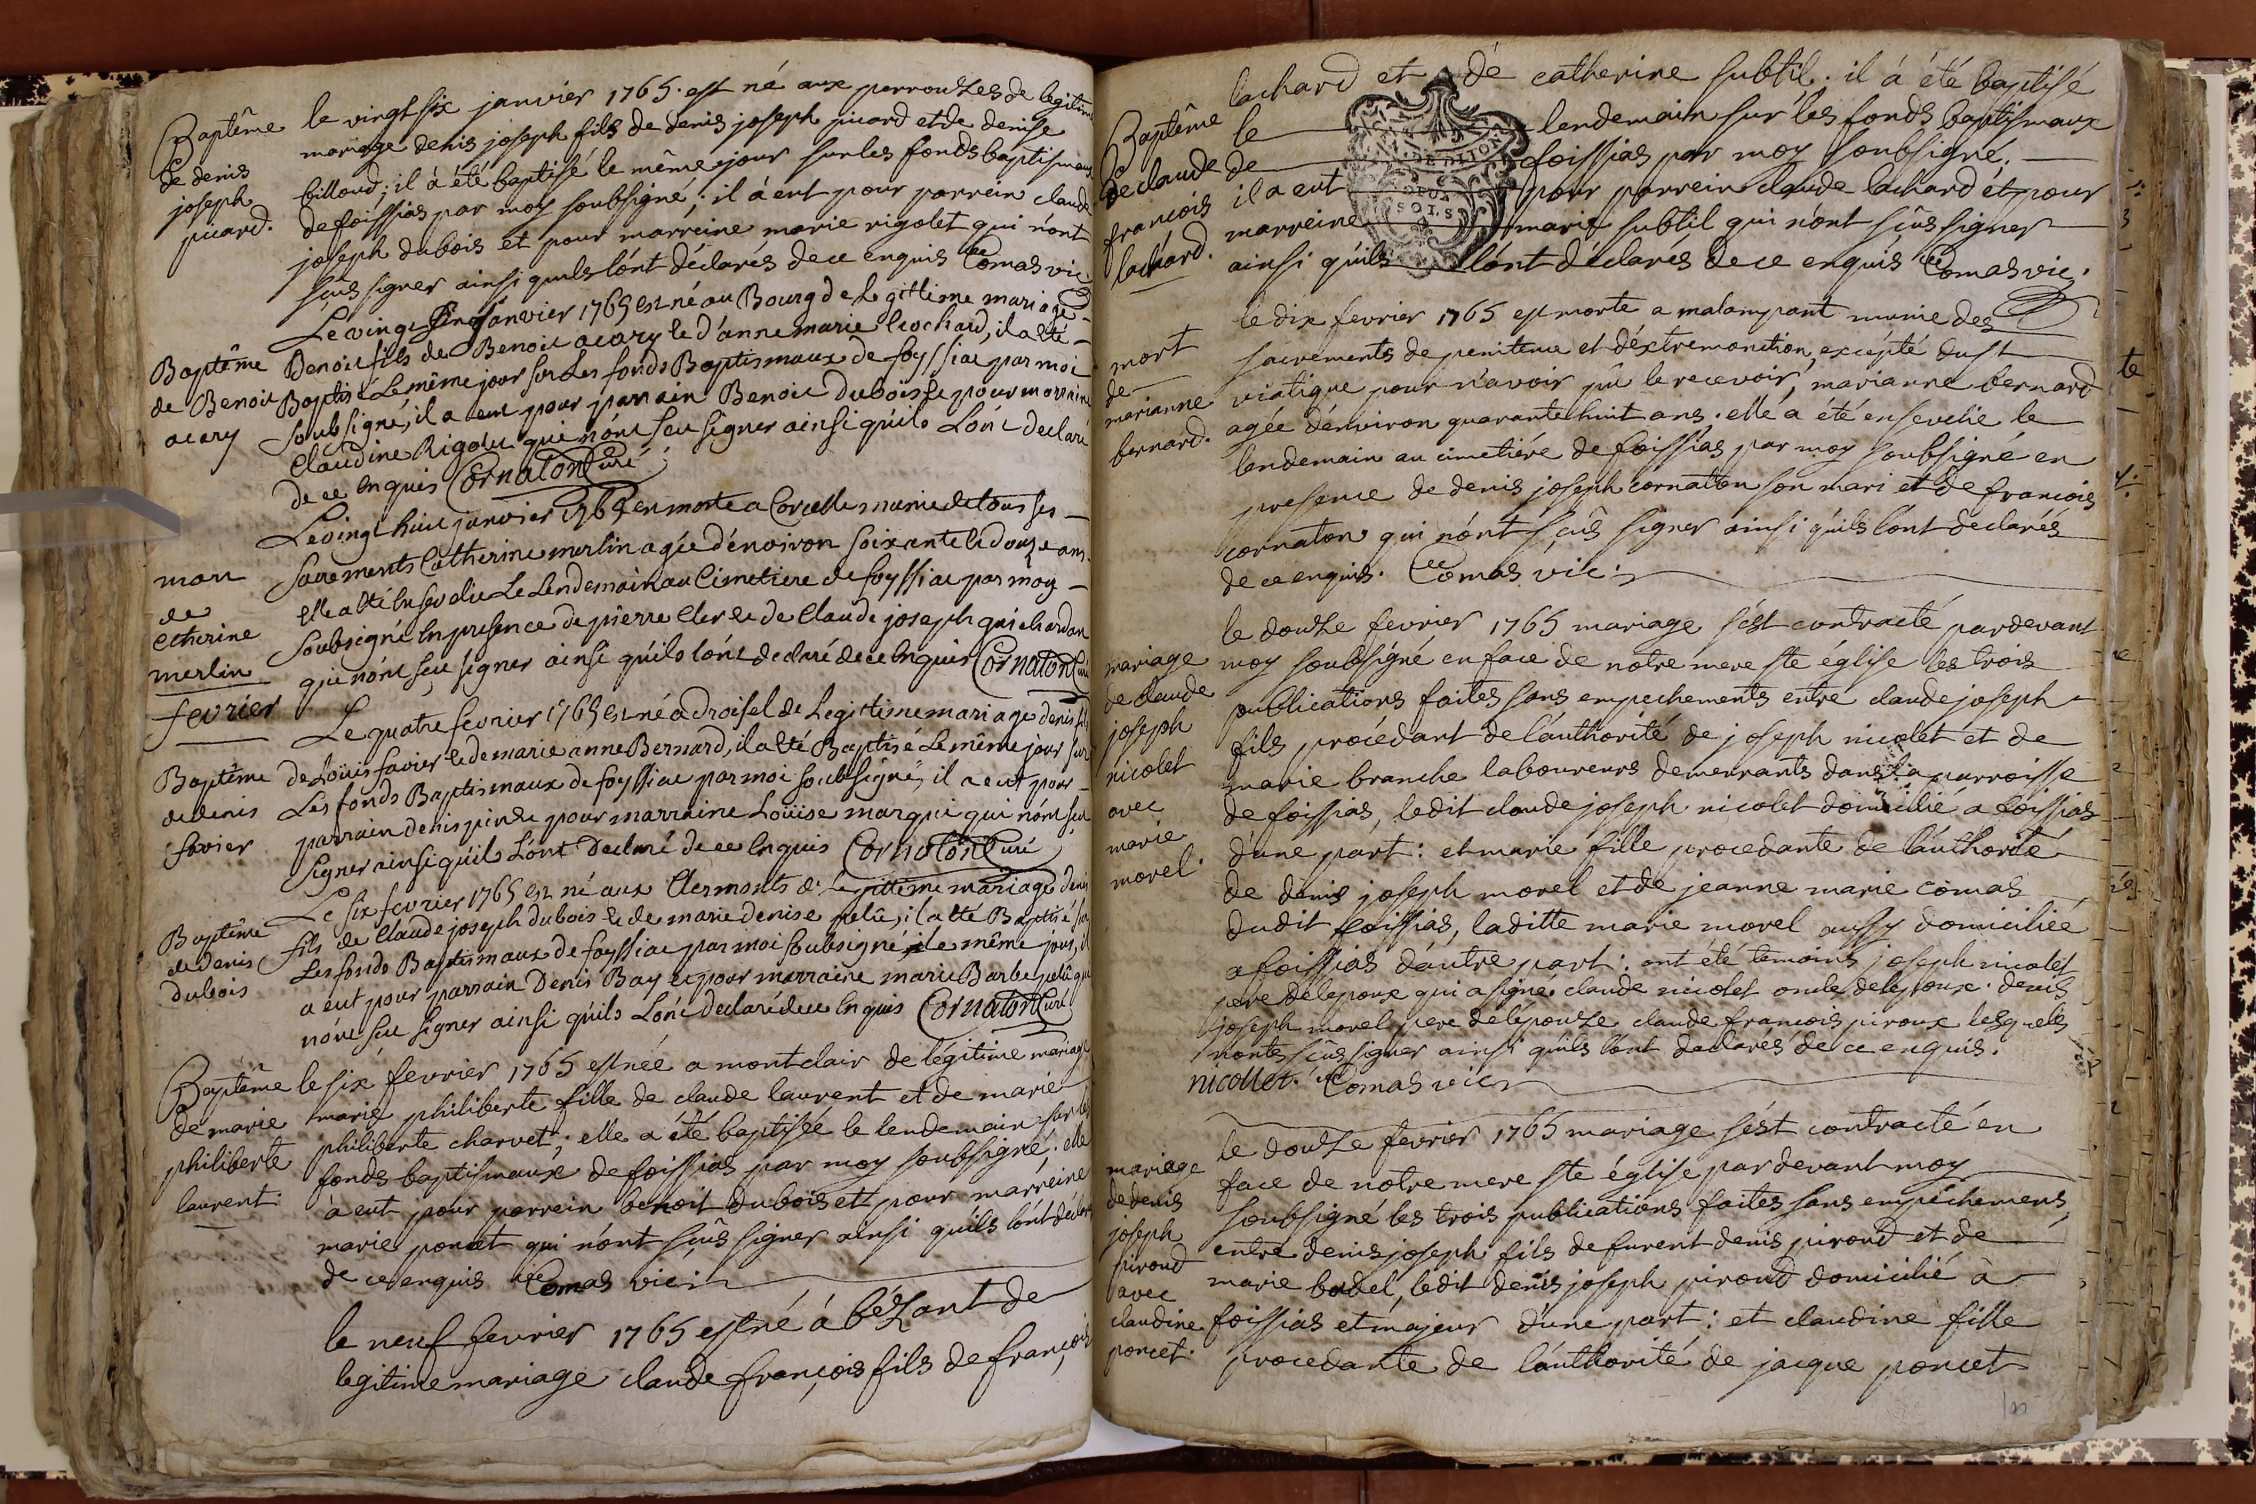 Baptême
de denis
joseph
picard.
le vingt six janvier 1765. est né aux perrouses de legitime
mariage denis joseph fils de denis joseph picard et de denise
billoud; il à été baptisé le même jour sur les fonds baptismaux
de foissias par moy soubsigné; il à eut pour parrein claude
joseph dubois et pour marreine marie rigolet qui n'ont
sçus signer ainsi quils l'ont déclarés de ce enquis Comas vic.
Baptême
de Benoit
acary
Le vingt janvier 1765 est né au Bourg de Legittime mariage
Benoit fils de Benoit acary et d'anne marie brochard, il a été
Baptisé Le même jour sur Les fonds Baptismaux de foyssiac par moi
soubsigné, il a eut pour parrain Benoit Dubois et pour marraine
claudine Rigolet qui n'ont sçu signer ainsi qu'ils L'ont declaré
de ce enquis Cornaton Curé
mort
de
Catherine
merlin
Le vingt huit janvier 1765 est morte a Corcelle munie de tous ses
sacrements Catherine merlin agée d'environ soixante et douze ans
elle a été Ensevelie Le Lendemain au Cimetiere de foyssiac par moy
soubsigné En presence de pierre Cler et de Claude joseph quichardan
qui n'ont sçu signer ainsi qu'ils l'ont declaré de ce Enquis Cornaton Curé
fevrier
Baptême
de denis
favier
Le quatre fevrier 1765 est né a droisel de Legittime mariage denis fils
de Loüis favier et de marie anne Bernard, il a été Baptisé Le même jour sur
Les fonds Baptismaux de foyssiac par moi soubsigné, il a eut pour
parrain denis et pour marraine Loüise marquis qui n'ont sçu
signer ainsi qu'ils L'ont declaré de ce Enquis Cornaton Curé
Baptême
de denis
dubois
Le six fevrier 1765 est né aux Clermonts de Legittime mariage denis
fils de Claude joseph dubois et de marie denise pelû, il a été Baptisé sur
Les fonds Baptismaux de foyssiac par moi soubsigné le même jour, il
a eut pour parrain Denis Bay et pour marraine marie Barbe pelû qui
n'ont sçu signer ainsi qu'ils L'ont declaré de ce Enquis Cornaton Curé
Baptême
de marie
philiberte
laurent.
le six fevrier 1765 est née a montclair de légitime mariage
marie philiberte fille de claude laurent et de marie
philiberte charvet; elle a été baptisée le lendemain sur les
fonds baptismaux de foissias par moy soubsigné; elle
à eut pour parrein benoit dubois et pour marreine
marie poncet qui n'ont sçûs signer ainsi quils l'ont déclaré
de ce enquis Comas vic.
le neuf fevrier 1765 est né à bézant de
legitime mariage claude françois fils de françois
Baptême
de claude
francois
lachard.
lachard et dé catherine subtil. il à été baptisé
le lendemain sur les fonds baptismaux
de foissias par moy soubsigné.
il a eut pour parrein claude lachard et pour
marreine marie subtil qui n'ont sçûs signer
ainsi qu'ils l'ont déclarés de ce enquis Comas vic.
DE DIJON
DEUX
SOLS
mort
de
marianne
bernard.
le dix fevrier 1765 est morte a malampant munie des
sacrements de penitence et d'éxtremonction, excépté du st
viatique pour n'avoir pû le recevoir, marianne bernard
agée d'environ quarante huit ans. elle a été ensevelie le
lendemain au cimetiére de foissias par moy soubsigné en
presence de denis joseph cornaton son mari et de francois
cornaton qui n'ont sçûs signer ainsi quils l'ont declarés
de ce enquis. Comas vic.
mariage
de claude
joseph
nicolet
avec
marie
morel.
le douse fevrier 1765 mariage s'ést contracté pardevant
moy soubsigné en face de notre mere ste église les trois
publications faites sans empechements entre claude joseph
fils procédant de l'authorité de joseph nicolet et de
marie branche laboureurs demeurants dans la parroisse
de foissias, ledit claude joseph nicolet domicilié a foissias
d'une part: et marie fille procedante de l'authorité
de denis joseph morel et de jeanne marie comas
dudit foissias, laditte marie morel aussy domiciliée
a foissias d'autre part: ont été temoins joseph nicolet
pere de lepoux qui a signé claude nicolet oncle de lepoux. denis
joseph morel pere de lépouse claude francois piroux lesquels
n'onts sçûs signer ainsi quils l'ont declarés de ce enquis.
nicollet. Comas vic.
mariage
de denis
joseph
piroud
avec
claudine
poncet.
le douse fevrier 1765 mariage s'ést contracté en
face de notre mere ste église par devant moy
soubsigné les trois publications faites sans empéchemens
entre denis joseph fils de furent denis piroud et de
marie bodel, ledit denis joseph piroud domicilié à
foissias et majeur d'une part: et claudine fille
procedante de l'authorité de jacque poncet